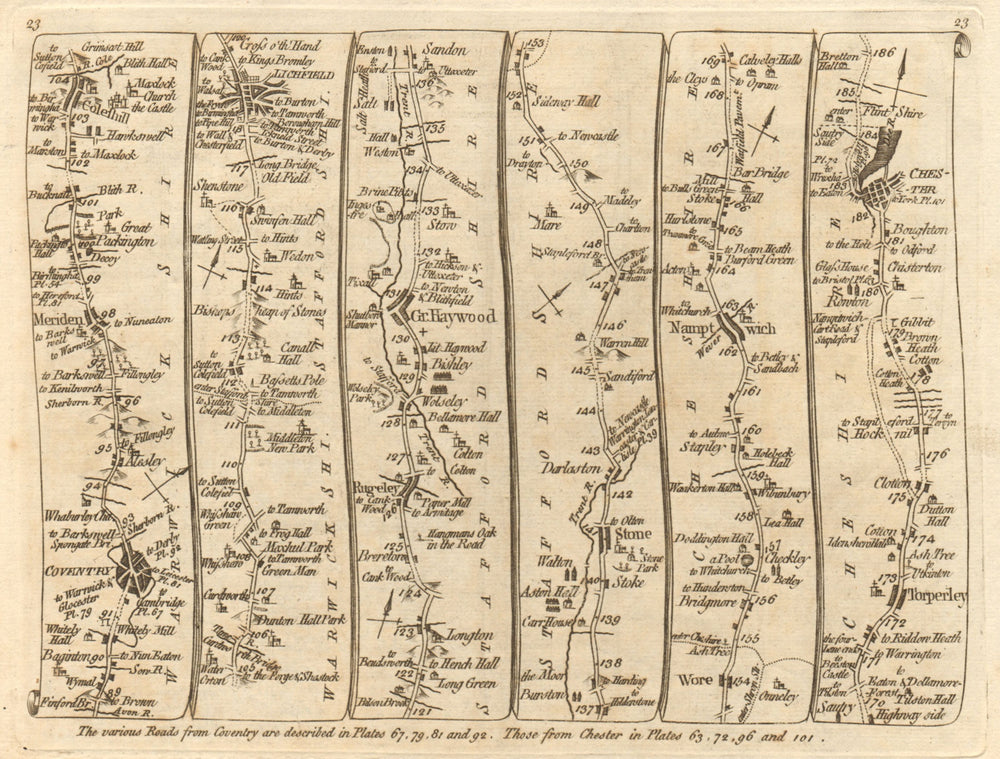 23
23
Grimscot Hill
to Sutton Cofield
R. Cole
Blith Hall
104
Maxlock Church
the Castle
Coleshill
to Warwick
103
Hawkswell
to Marston
to Maxlock
102
Blith R.
to Bucknall
101
Park
Great Packington
Packington Hall
100
Decoy
99
to Birmingha Pl. 54
to Hereford Pl. 81
Meriden
98
to Nuneaton
to Barkswell
to Warwick
97
to Barkswell
Fillongley
to Kenilworth
Sherborn R.
96
to Fillongley
95
Alesley
94
Whaburley Cha.
93
Sherborn R.
to Barkswell
Spongate Br.
to Derby Pl. 92
COVENTRY
to Leicester Pl. 81
to Warwick & Glocester Pl. 79
to Cambridge Pl. 67
91
Whitely Hall
Whitely Mill
Baginton
90
to Nun Eaton
Sow R.
Wymal
89
to Brown
Finford Br.
Avon R.
WARWICKSHIRE
Cross o'th' Hand
to Kings Bromley
to Cank Wood
LICHFIELD
to Walsal
to Barton
to Tamworth
Borougham Hill
to Tamworth
to Pipe Hill
118
Icknald Street
to Wall & Chesterfield
to Burton & Derby
117
Long Bridge
Old Field
Shenstone
116
Swinfen Hall
Watling Street
to Hints
115
Wedon
114
Hints
Bishops heap of Stones
113
Canall Hall
to Sutton Colefield
112
Bassetts Pole
enter Stafford Shire
to Tamworth
to Sutton Colefield
to Middleton
111
Middleton New Park
110
to Sutton Colefiel
to Tamworth
Whishaw Green
109
to Frog Hall
Maxhul Park
Whishaw
108
to Tamworth
Green Man
Curdworth
107
Dunton Hall Park
106
to Curdwo
Water Orton
105
to the Forge & Shustock
WARWICKSHI.
STAFFORDSHI.
Enston
to Stafford
Sandon
to Uttoxeter
136
Salt Heath
Salt
Trent R.
135
Salt Hall
Weston
134
to Uttoxeter
Brine Pitts
Ingestre
Hall
133
Stow
132
to Hickson & Uttoxeter
Tixall
to Newton & Blithfield
131
Shutboro Mannor
Gr: Haywood
130
Lit. Haywood
to Stafford
129
Bishley
Wolseley Park
Wolseley
128
Bellamore Hall
Trent R.
Colton
127
to Colton
Rugeley
to Cank Wood
126
Paper Mill
to Armitage
Hangmans Oak in the Road
125
Brereton
to Cank Wood
124
123
Longton
to Beudsworth
to Hench Hall
122
Long Green
Bilson Brook
121
STAFFORD
153
152
Sideway Hall
151
to Newcastle
to Drayton
150
149
to Madeley
Mare
to Charlton
148
Stapleford Br.
to Trenham
147
146
Warren Hill
145
Sandiford
144
to Newcastle Warrington Lancaster & Carlisle Pl. 39
143
Darlaston
142
Trent R.
to Olton
141
Stone
Stone Park
Walton
140
Stoke
Aston Hall
Carr House
139
138
the Moor
to Harding
Burston
to Hilderstone
137
STAFFORDSHIRE
169
Calveley Halls
the Clew
to Opram
168
167
Bar Bridge
Mill
to Bulls Green
Hall
Stoke
166
Hurlstone
165
to Beam Heath
Durford Green
Acton
164
to Whitchurch
163
Namptwich
Wever R.
162
to Betley & Sandbach
161
to Aulme
160
Stapley
Holebeck Hall
159
Waakerton Hall
Wibunbury
158
Lea Hall
Doddington Hall
157
a Pool
Checkley
to Whitchurch
to Betley
to Hunderston
Bridgmore
156
enter Cheshire
Ash Tree
155
Wore
154
Onneley
enter Shrop. Sh.
CHESHIRE
Bretton Hall
186
185
Flint Shire
enter
Sautry Side
184
Pl. 72
to Wrixham
183
to Eaton
CHESTER
to York Pl. 101
182
Boughton
to the Holt
181
to Odford
Glass House
Christerton
to Bristol Pl. 63
180
Rowton
Namptwich Cart Road & Stapleford
Gibbit
179
Brown Heath
Cotton
Cotton Heath
178
to Stapleford
177
to Tervin
Hockenil
176
Clotton
175
Dutton Hall
Cotton
Idenshen Hall
174
Ash Tree
to Utkinton
173
Torperley
172
to Riddore Heath
the four lane ends
to Warrington
to Beeston Castle
171
to Eaton & Dellamore Forest
to Tilston
170
Tilston Hall
Sautry
Highway side
CHESHIRE
The various Roads from Coventry are described in Plates 67, 79, 81 and 92. Those from Chester in Plates 63, 72, 96 and 101.